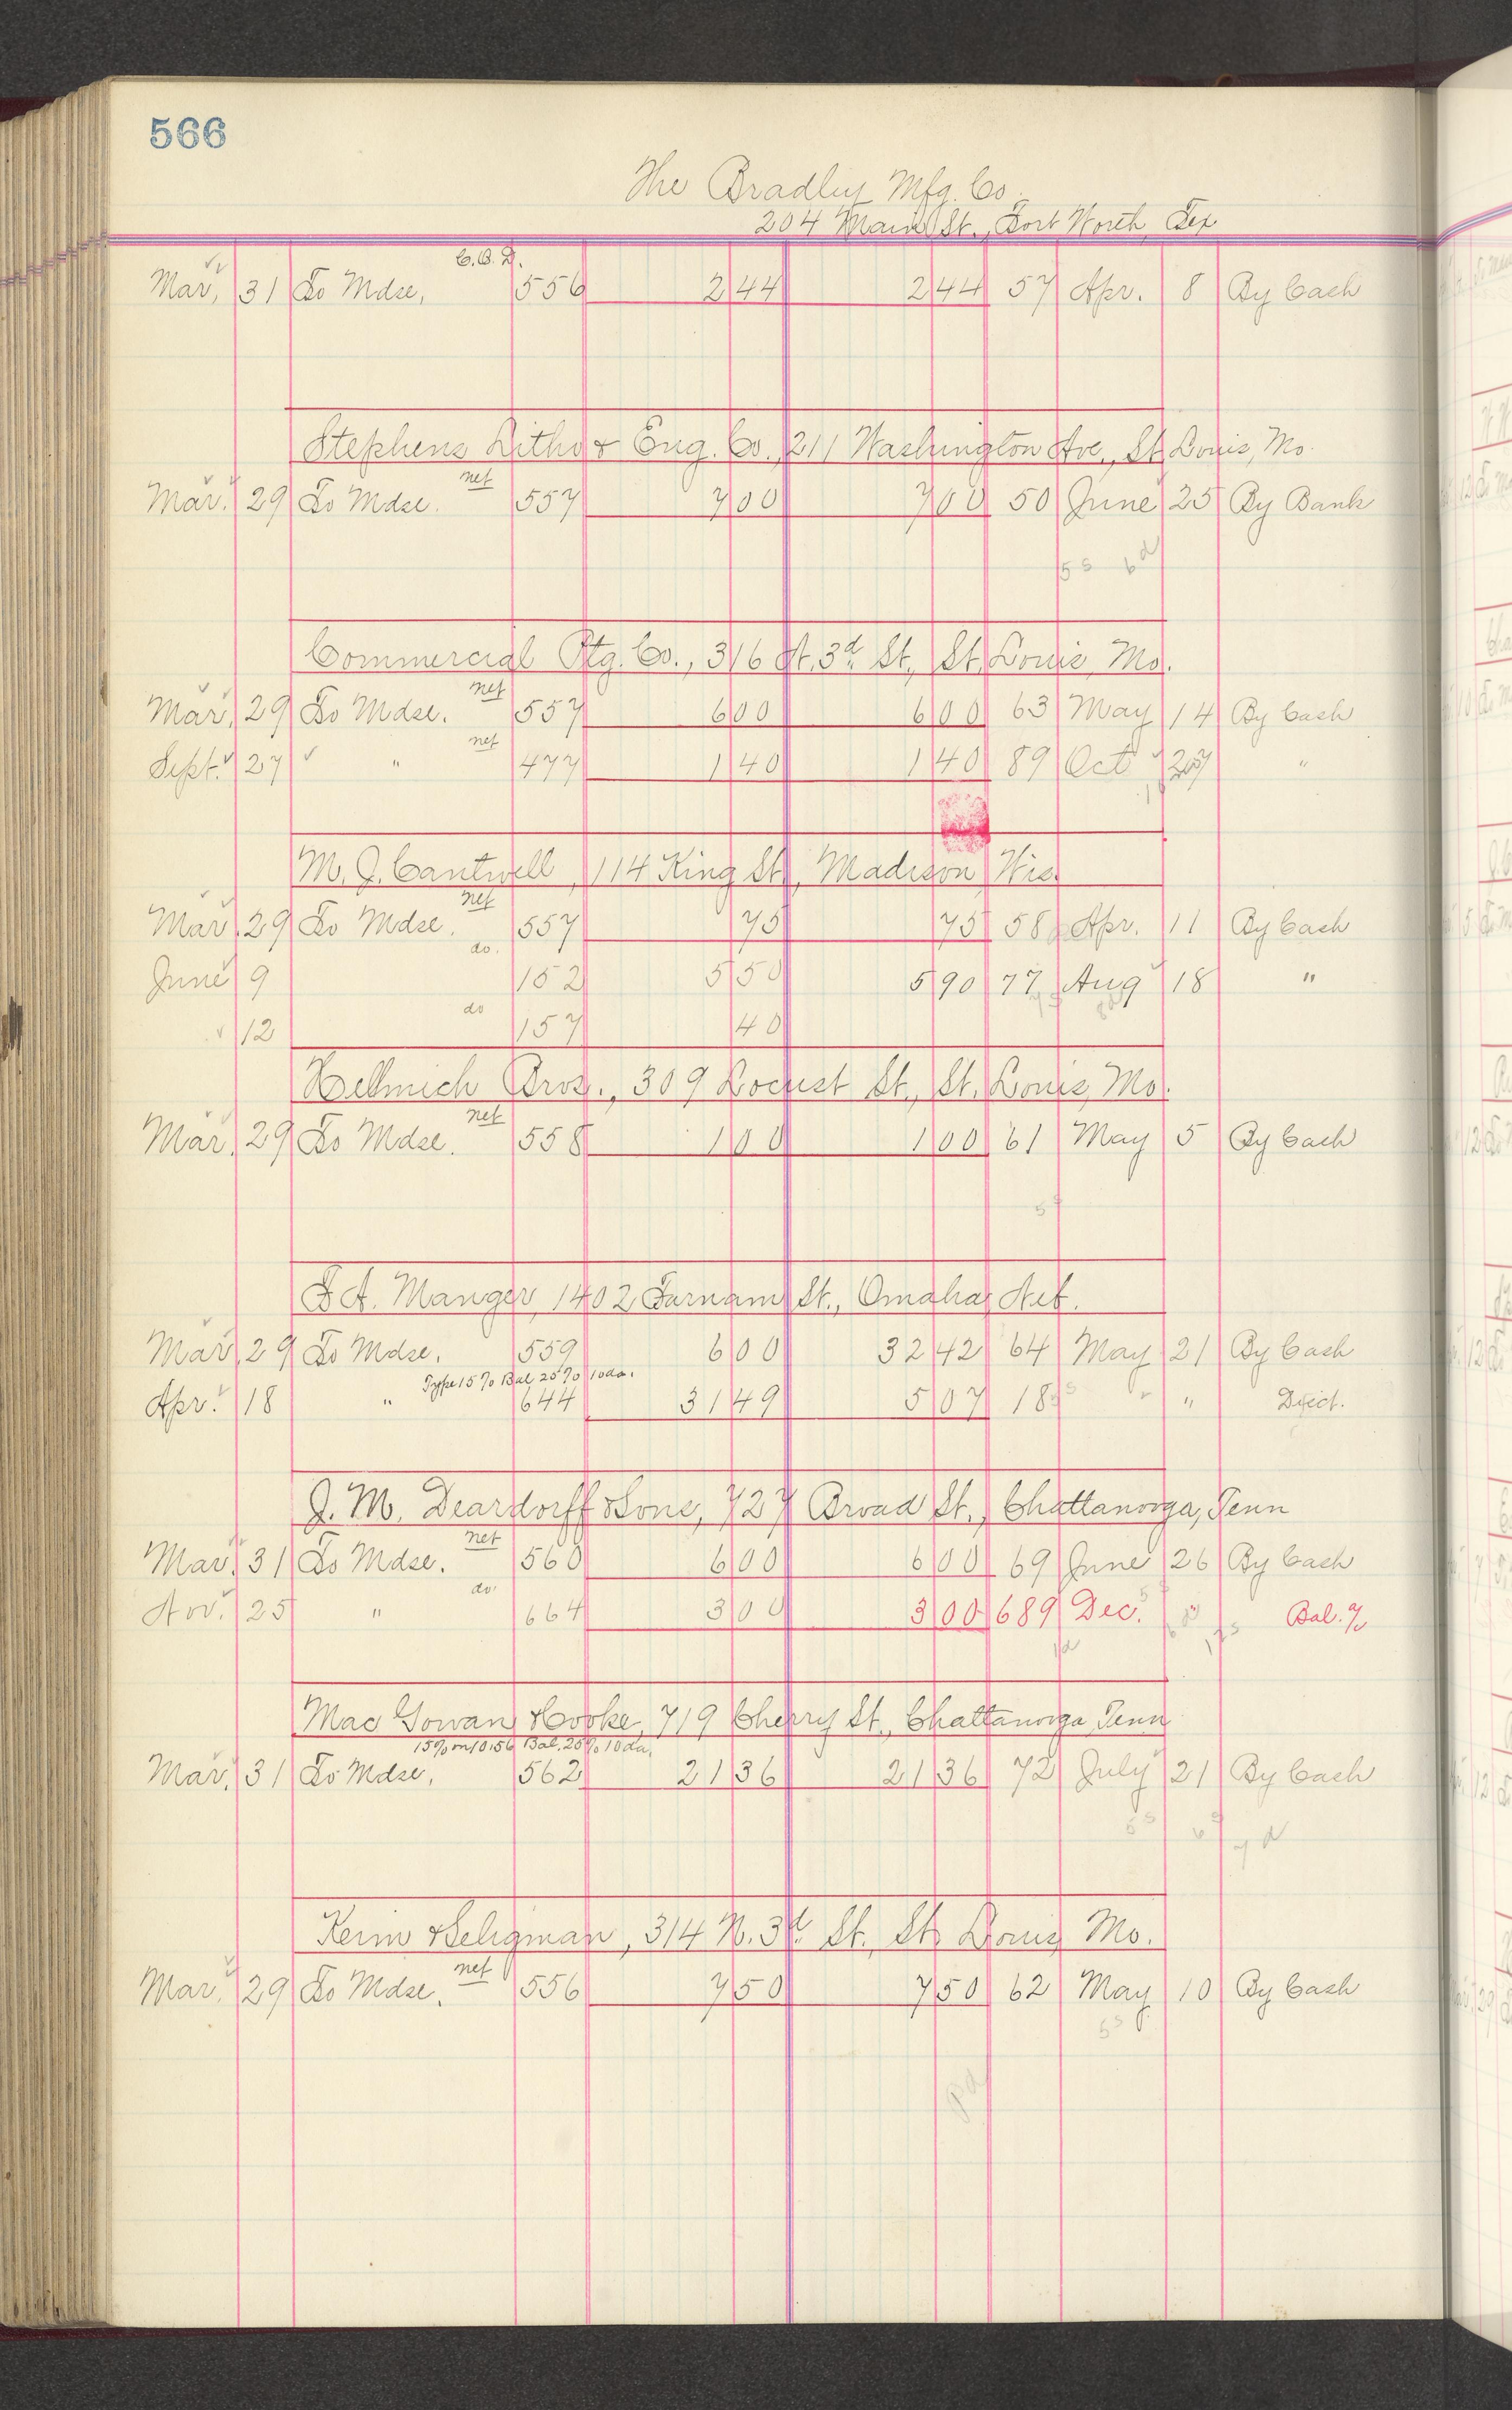 566
The Bradley Mfg. Co.
204 Main St., Fort Worth, Tex
C.O.D.
Mar. 31 To Mdse. 556 2 44 2 44 57 Apr. 8 By Cash
Stephens Litho & Eng. Co., 211 Washington Ave., St. Louis, Mo.
net
Mar. 29 To Mdse. 557 7 00 7 00 50 June 25 By Bank
5 s 6 d
Commercial Ptg. Co., 316 N. 3d St., St. Louis, Mo.
net
Mar. 29 To Mdse. 557 6 00 6 00 63 May 14 By Cash
net
Sept. 27 " 477 1 40 1 40 89 Oct "
M. J. Cantwell, 114 King St., Madison, Wis.
net
Mar. 29 To Mdse. 557 75 75 58 Apr. 11 By Cash
do.
June 9 152 5 50 5 90 77 Aug 18 "
do
12 157 40
Hellmich Bros., 309 Locust St., St. Louis, Mo.
net
Mar. 29 To Mdse. 558 1 00 1 00 61 May 5 By Cash
5 s
F. A. Manger, 1402 Farnam St., Omaha, Neb.
Mar. 29 To Mdse. 559 6 00 32 42 64 May 21 By Cash
Type 15% Bal 25% 10 da.
Apr. 18 " 644 31 49 5 07 18 " " Disct.
J. M. Deardorff & Sons, 727 Broad St., Chattanooga, Tenn
net
Mar. 31 To Mdse. 560 6 00 6 00 69 June 26 By Cash
do.
Nov. 25 " 664 3 00 3 00 689 Dec. Bal. %
1 d
Mac Gowan & Cooke, 719 Cherry St., Chattanooga, Tenn
15% on 10.56 Bal. 25% 10 da.
Mar. 31 To Mdse. 562 21 36 21 36 72 July 21 By Cash
5 s 6 s 7 d
Keim & Seligman, 314 N. 3d St. St. Louis Mo.
net
Mar. 29 To Mdse. 556 7 50 7 50 62 May 10 By Cash
5 s
Pd